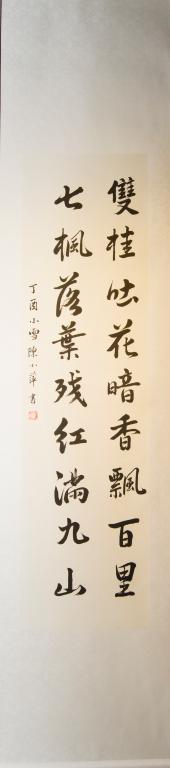 雙桂吐花暗香飄百里
七楓落葉残红滿九山
丁酉小雪陳小萍書